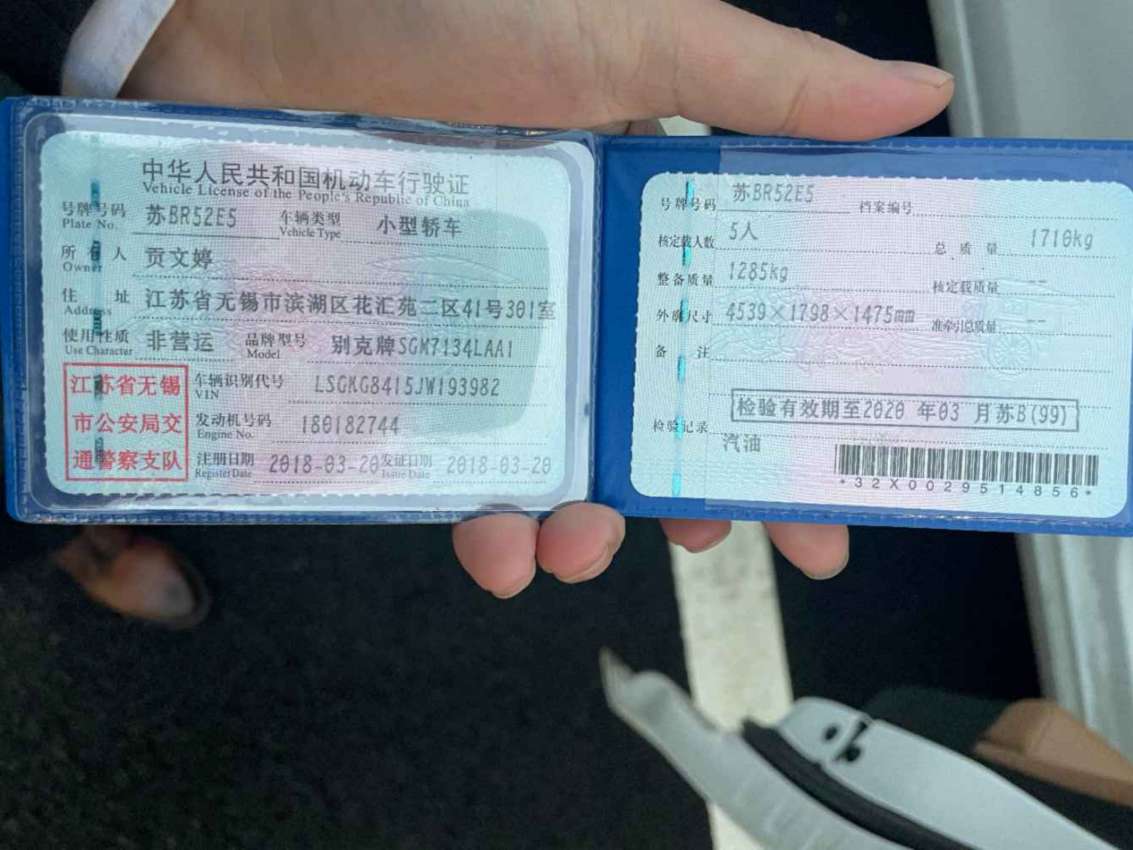 中华人民共和国机动车行驶证
Vehicle License of the People's Republic of China
号牌号码 苏BR52E5 车辆类型 小型轿车
Plate No. Vehicle Type
所有人 贡文婷
Owner
住址 江苏省无锡市滨湖区花汇苑二区41号301室
Address
使用性质 非营运 品牌型号 别克牌SGM7134LAA1
Use Character Model
江苏省无锡
市公安局交
通警察支队
车辆识别代号 LSGKG8415JW193982
VIN
发动机号码 180182744
Engine No.
注册日期 2018-03-20 发证日期 2018-03-20
Register Date Issue Date
号牌号码 苏BR52E5 档案编号
核定载人数 5人 总质量 1710kg
整备质量 1285kg 核定载质量 --
外廓尺寸 4539×1798×1475mm 准牵引总质量 --
备注
检验有效期至2020 年03 月苏B(99)
检验记录
汽油
*32X0029514856*